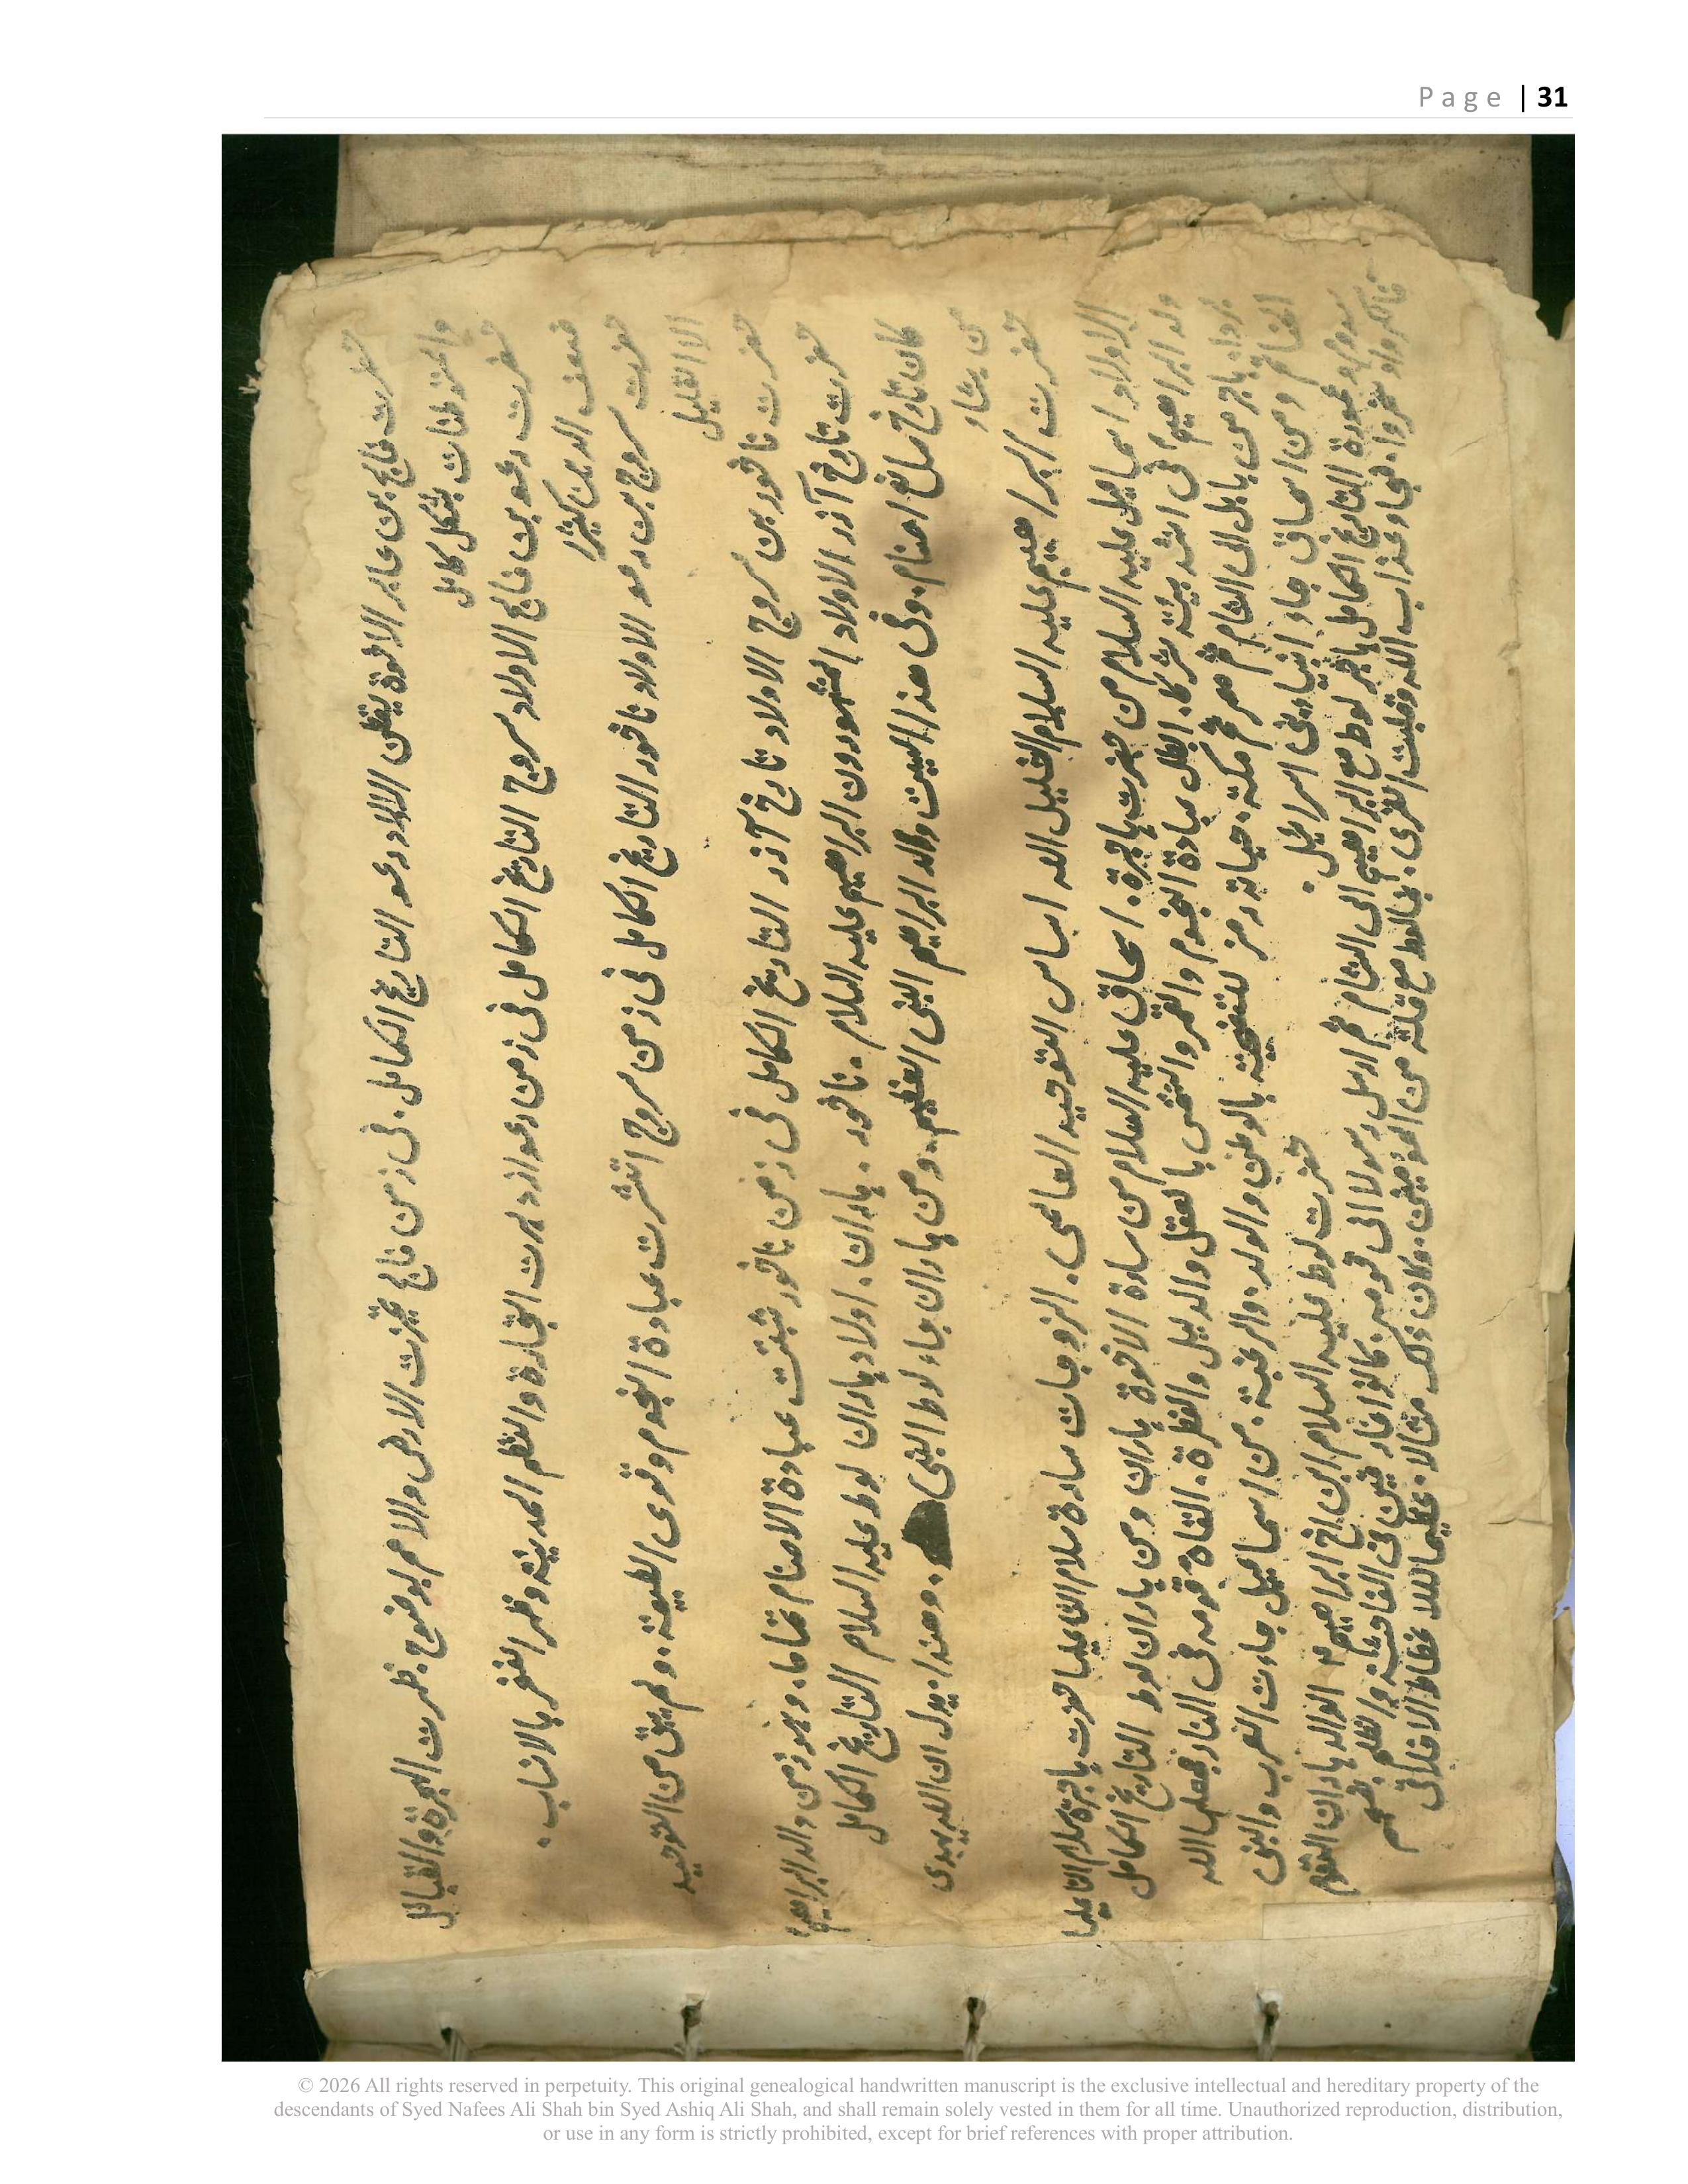 Page | 31
حضرت فالج بن عابر الاخوة يقطن الاولاد رعو التاريخ الكامل. فى زمن فالج تميزت الارض والامم بوضوح. ظهرت الهجرة والقبائل
والمستوطنات بشكل كامل
حضرت رعو بن فالج الاولاد سروج التاريخ الكامل فى زمن رعو ازدهرت التجارة والنظم المدينة وظهر الفخر بالانساب.
ضعف الدين كثيرا
حضرت سروج بن رعو الاولاد ناخور التاريخ الكامل فى زمن سروج انتشرت عبادة النجوم وقوى الطبيعة. ولم يبق من التوحيد
الا القليل
حضرت ناخور بن سروج الاولاد تارخ آذر التاريخ الكامل فى زمن ناخور ثبتت عبادة الاصنام تماما. وهو زمن والد ابراهيم
حضرت تارخ آذر الاولاد المشهورون ابراهيم عليه السلام. ناخور. ہاران. اولاد ہاران لوط عليه السلام التاريخ الكامل
كان تارخ صانع اصنام. وفى هذا البيت ولد ابراهيم النبى العظيم. ومن ہاران جاء لوط النبى. وهذا يدل ان الله يهدى
من يشاء
حضرت ابراهيم عليه السلام الخليل الله اساس التوحيد العالمى. الزوجات سادة سلام الله عليها حضرت ہاجرة سلام الله عليها
الاولاد اسماعيل عليه السلام من حضرت ہاجرة. اسحاق عليه السلام من سادة الاخوة ہاران ومن ہاران لوط التاريخ الكامل
ولد ابراهيم فى اشد بيئة شركا. ابطل عبادة النجوم والقمر والشمس بالعقل والدليل والفطرة. القاه قومه فى النار فجعلها الله
بردا. ہاجر من بابل الى الشام ثم مصر ثم مكة. حياته رمز للتضحية بالوطن والولد. والرغبة. من اسماعيل جاءت العرب والنبى
الخاتم ومن اسحاق جاء انبياء بنى اسرائيل.
حضرت لوط عليه السلام ابن اخ ابراهيم الوالد ہاران القوم
سدوم وعمورة التاريخ الكامل ہاجر لوط مع ابراهيم الى الشام ثم ارسل رسولا الى قومہ. كانوا غارقين فى الفاحشة والظلم. نصحهم
فانكروا وسخروا. فجاء عذاب الله وقلبت القرى. نجا لوط مع قلة من المؤمنين. وكان ذلك مثالا عظيما للانحطاط الاخلاقى
© 2026 All rights reserved in perpetuity. This original genealogical handwritten manuscript is the exclusive intellectual and hereditary property of the
descendants of Syed Nafees Ali Shah bin Syed Ashiq Ali Shah, and shall remain solely vested in them for all time. Unauthorized reproduction, distribution,
or use in any form is strictly prohibited, except for brief references with proper attribution.